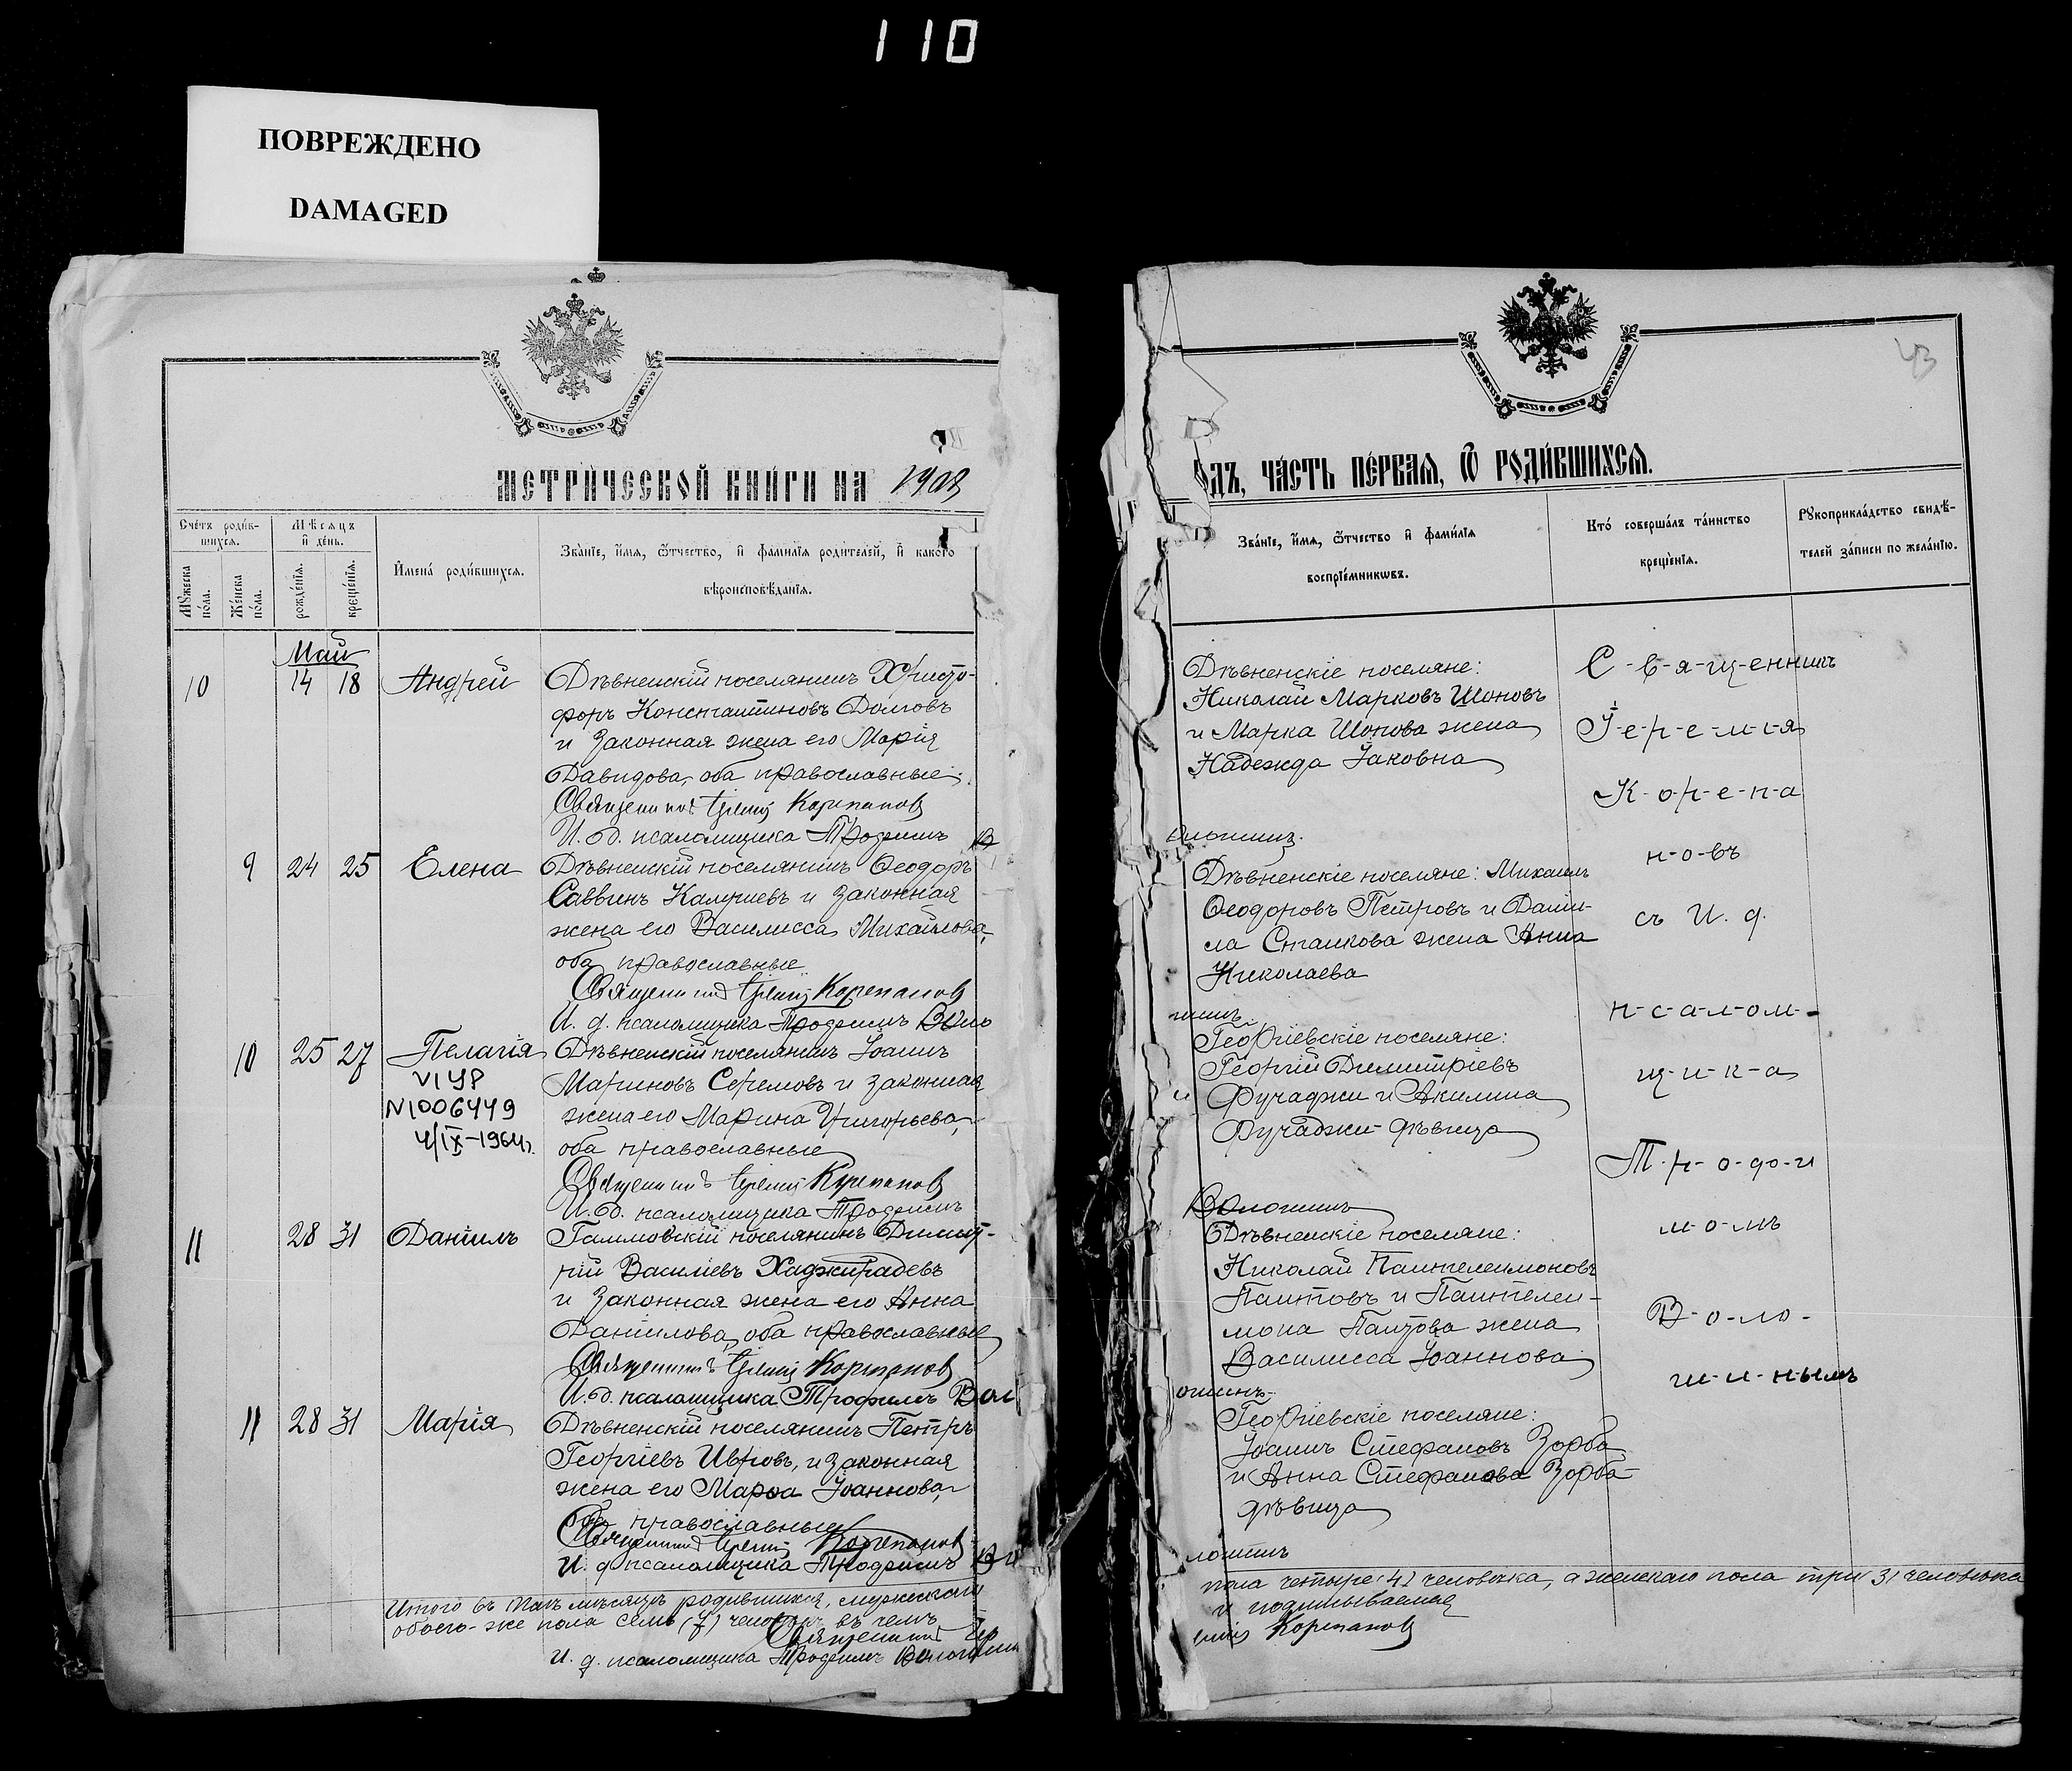 110
ПОВРЕЖДЕНО
DAMAGED
МЕТРИЧЕСКОЙ КНИГИ НА 1908
Счетъ родив-
шихся.
Мужеска
пола.
Женска
пола.
Мѣсяцъ
и день.
рожденія.
крещенія.
Имена родившихся.
Званіе, имя, отчество, и фамилія родителей, и какого
вѣроисповѣданія.
Май
10 14 18 Андрей
Дѣвненскій поселянинъ Христо-
форъ Константиновъ Долговъ
и законная жена его Марія
Давидова, оба православные.
Священникъ Іеремія Корепановъ
И. д. псаломщика Трофимъ В
9 24 25 Елена
Дѣвненскій поселянинъ Ѳеодоръ
Саввинъ и законная
жена его Василисса Михайлова,
оба православные
Священникъ Іеремія Корепановъ
И. д. псаломщика Трофимъ Воло
10 25 27 Пелагія
VIYP
N1006449
4/IX-1964г.
Дѣвненскій поселянинъ Іоаннъ
Мариновъ и законная
жена его Марина Григорьева,
оба православные
Священникъ Іеремія Корепановъ
И. д. псаломщика Трофимъ
11 28 31 Даніилъ
поселянинъ Димит-
рій Василіевъ Хаджирадевъ
и законная жена его Анна
Даніилова, оба православные
Священникъ Іеремія Корепановъ
И. д. псаломщика Трофимъ Вол
11 28 31 Марія
Дѣвненскій поселянинъ Петръ
Георгіевъ и законная
жена его Марѳа Іоаннова,
оба православные
Священникъ Іеремія Корепановъ
И. д. псаломщика Трофимъ В
Итого въ Маѣ мѣсяцѣ родившихся, мужескаго
обоего-же пола семь (7) человѣкъ въ чемъ
Священникъ Іер
И. д. псаломщика Трофимъ Волошин
43
ОДЪ, ЧАСТЬ ПЕРВАЯ, Ѿ РОДИВШИХСЯ.
Званіе, имя, отчество и фамилія
воспріемниковъ.
Кто совершалъ таинство
крещенія.
Рукоприкладство свидѣ-
телей записи по желанію.
Дѣвненскіе поселяне:
Николай Марковъ Шоповъ
и Марка Шопова жена
Надежда Іаковна
олошинъ.
Дѣвненскіе поселяне: Михаилъ
Ѳеодоровъ Петровъ и Дани-
ла Станкова жена Анна
Николаева
шинъ.
Георгіевскіе поселяне:
Георгій Димитріевъ
Фучаджи и Акилина
Фучаджи дѣвица
Волошинъ
Дѣвненскіе поселяне:
Николай Пантелеимоновъ
Пантовъ и Пантелеи-
мона Пантова жена
Василисса Іоаннова
ошинъ.
Георгіевскіе поселяне:
Іоаннъ Стефановъ Зорба
и Анна Стефанова Зорба
дѣвица
лошинъ
С-в-я-щ-енникъ
І-е-р-е-м-і-я
К-о-р-е-п-а
н-о-въ
съ И. д.
п-с-а-л-ом-
щ-и-к-а
Т-р-о-ф-и
м-о-мъ
В-о-ло-
ш-и-нымъ
пола четыре (4) человѣка, а женскаго пола три (3) человѣка
и подписываемся
емія Корепановъ